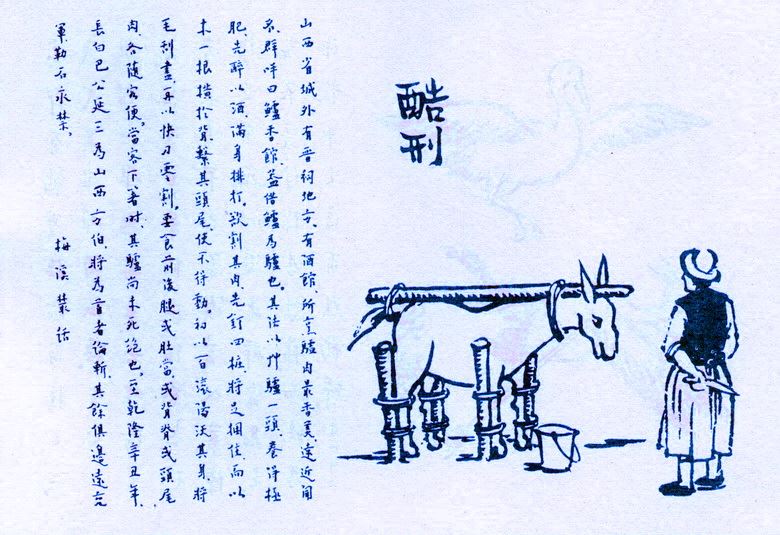 酷刑
山西省城外有晉祠地方、有酒館、所烹驢肉最香美、遠近聞
名、群呼曰鱸香館、蓋借鱸為驢也。其法以艸驢一頭、養得極
肥、先醉以酒、滿身排打、欲割其肉、先釘四樁、將足捆住、而以
木一根橫於背、繫其頭尾、使不得動。初以百滾湯沃其身、將
毛刮盡、再以快刀零割。要食前後腿或肚當或背脊或頭尾
肉、各隨客便。當客下箸時、其驢尚未死絕也。至乾隆辛丑年、
長白巴公延三為山西方伯、將為首者論斬、其餘俱邊遠充
軍、勒石永禁。 梅溪叢話